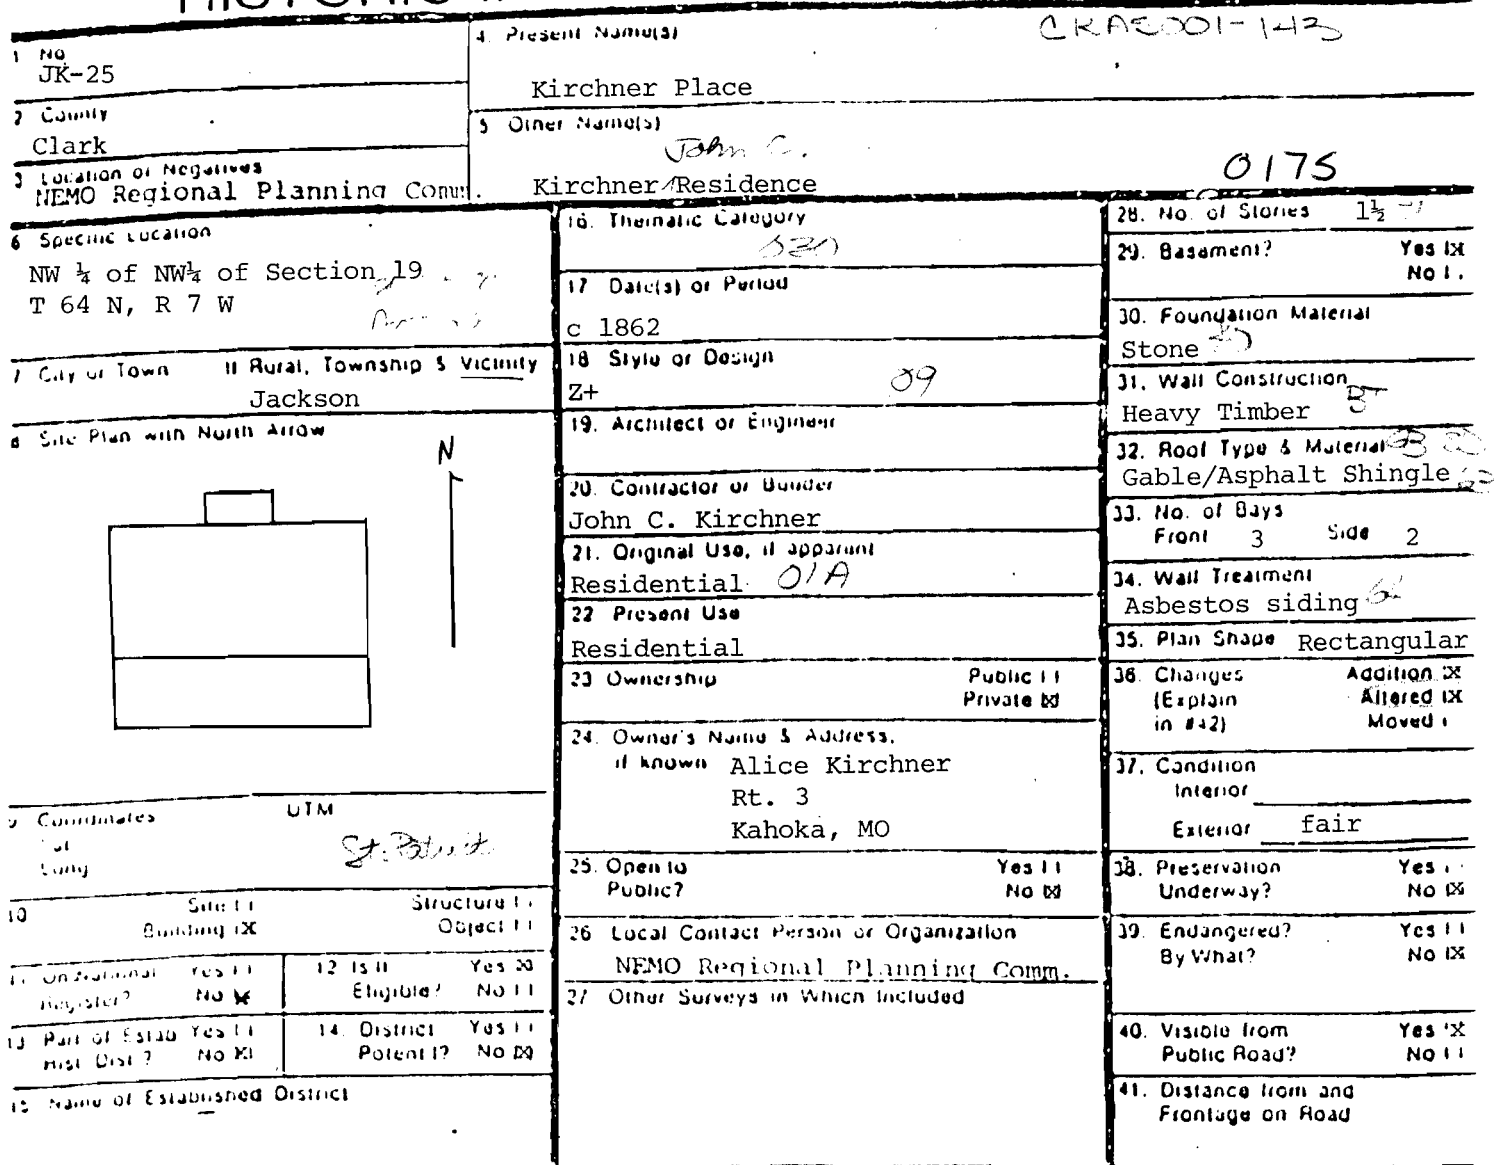 CKAE001-143
1 No.
JK-25
4. Present Name(s)
Kirchner Place
2 County
Clark
5 Other Name(s)
John C.
Kirchner Residence
3 Location of Negatives
NEMO Regional Planning Comm.
0175
6 Specific Location
NW ¼ of NW¼ of Section 19
T 64 N, R 7 W
7 City or Town If Rural, Township & Vicinity
Jackson
8 Site Plan with North Arrow
N
9 Coordinates UTM
Lat
Long
St. Patrick
10 Site [ ] Structure [ ]
Building [X] Object [ ]
11 On National Register? Yes [ ] No [X]
12 Is it Eligible? Yes [X] No [ ]
13 Part of Estab Hist. Dist.? Yes [ ] No [X]
14. District Potent'l? Yes [ ] No [X]
15 Name of Established District
16. Thematic Category
17 Date(s) or Period
c 1862
18 Style or Design
Z+ 09
19. Architect or Engineer
20. Contractor or Builder
John C. Kirchner
21. Original Use, if apparent
Residential 01A
22 Present Use
Residential
23 Ownership Public [ ]
Private [X]
24. Owner's Name & Address,
if known Alice Kirchner
Rt. 3
Kahoka, MO
25. Open to Yes [ ]
Public? No [X]
26 Local Contact Person or Organization
NEMO Regional Planning Comm.
27 Other Surveys in Which Included
28. No. of Stories 1½
29. Basement? Yes [X]
No [ ]
30. Foundation Material
Stone
31. Wall Construction
Heavy Timber
32. Roof Type & Material
Gable/Asphalt Shingle
33. No. of Bays
Front 3 Side 2
34. Wall Treatment
Asbestos siding
35. Plan Shape Rectangular
36. Changes Addition [X]
(Explain Altered [X]
in #42) Moved [ ]
37. Condition
Interior
Exterior fair
38. Preservation Yes [ ]
Underway? No [X]
39. Endangered? Yes [ ]
By What? No [X]
40. Visible from Yes [X]
Public Road? No [ ]
41. Distance from and
Frontage on Road